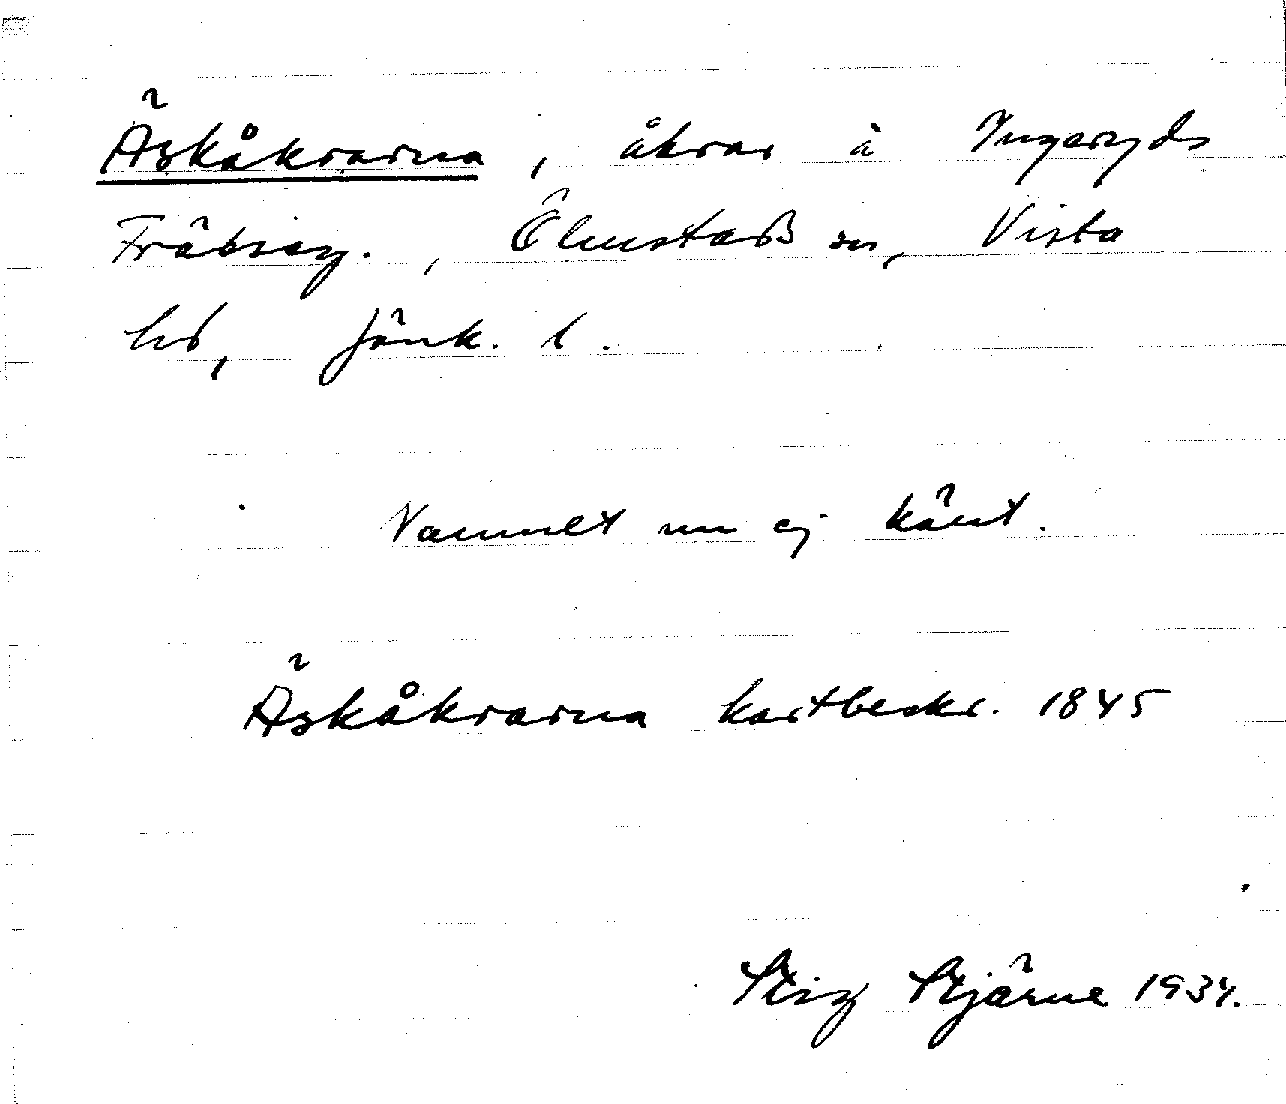 Äskåkrarna, åkrar å Ingaryds
Frälseg., Ölmstads sn, Vista
hd, Jönk. l.
Namnet nu ej känt.
Äskåkrarna kartbeskr. 1845
Stig Stjärne 1934.